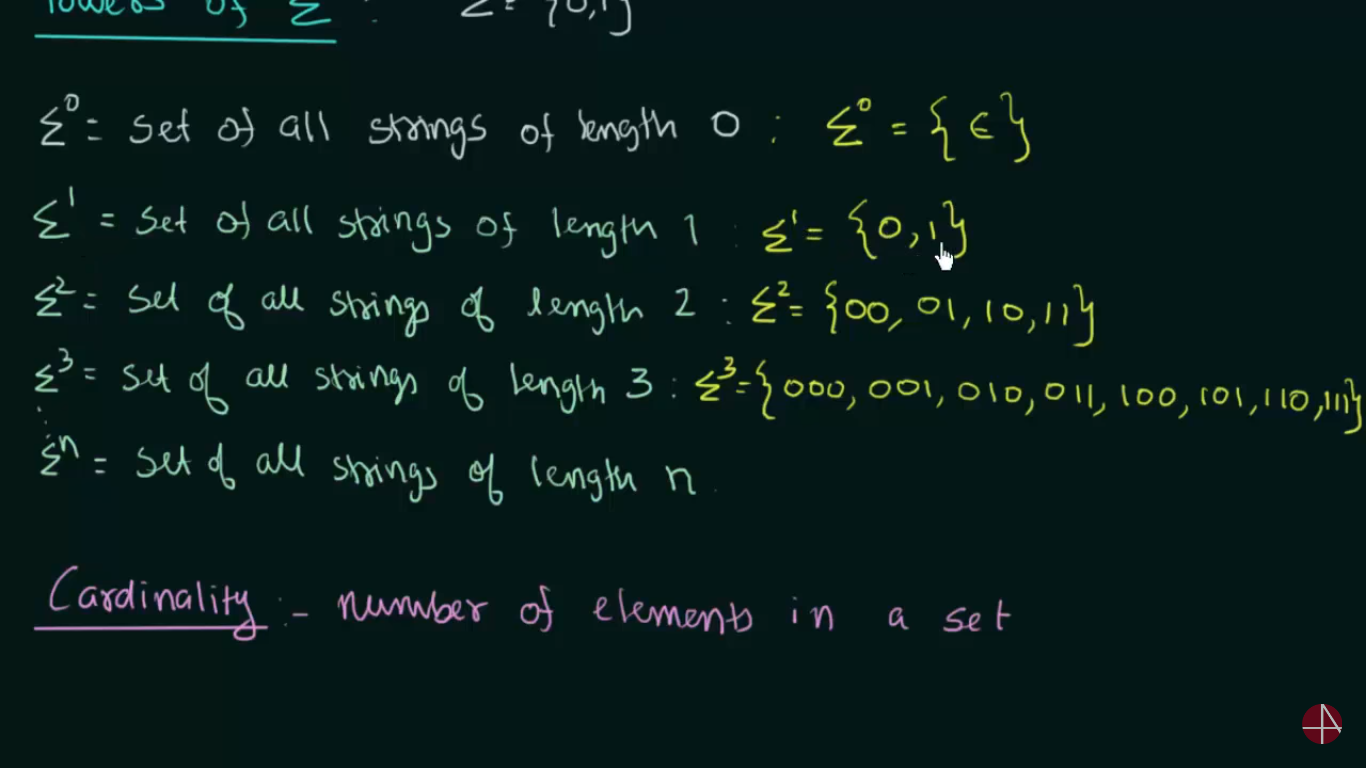 Powers of Σ : Σ = {0,1}
Σ⁰ = set of all strings of length 0 : Σ⁰ = {ϵ}
Σ¹ = set of all strings of length 1 : Σ¹ = {0,1}
Σ² = set of all strings of length 2 : Σ² = {00, 01, 10, 11}
Σ³ = set of all strings of length 3 : Σ³ = {000, 001, 010, 011, 100, 101, 110, 111}
⋮
Σⁿ = set of all strings of length n
Cardinality :- number of elements in a set